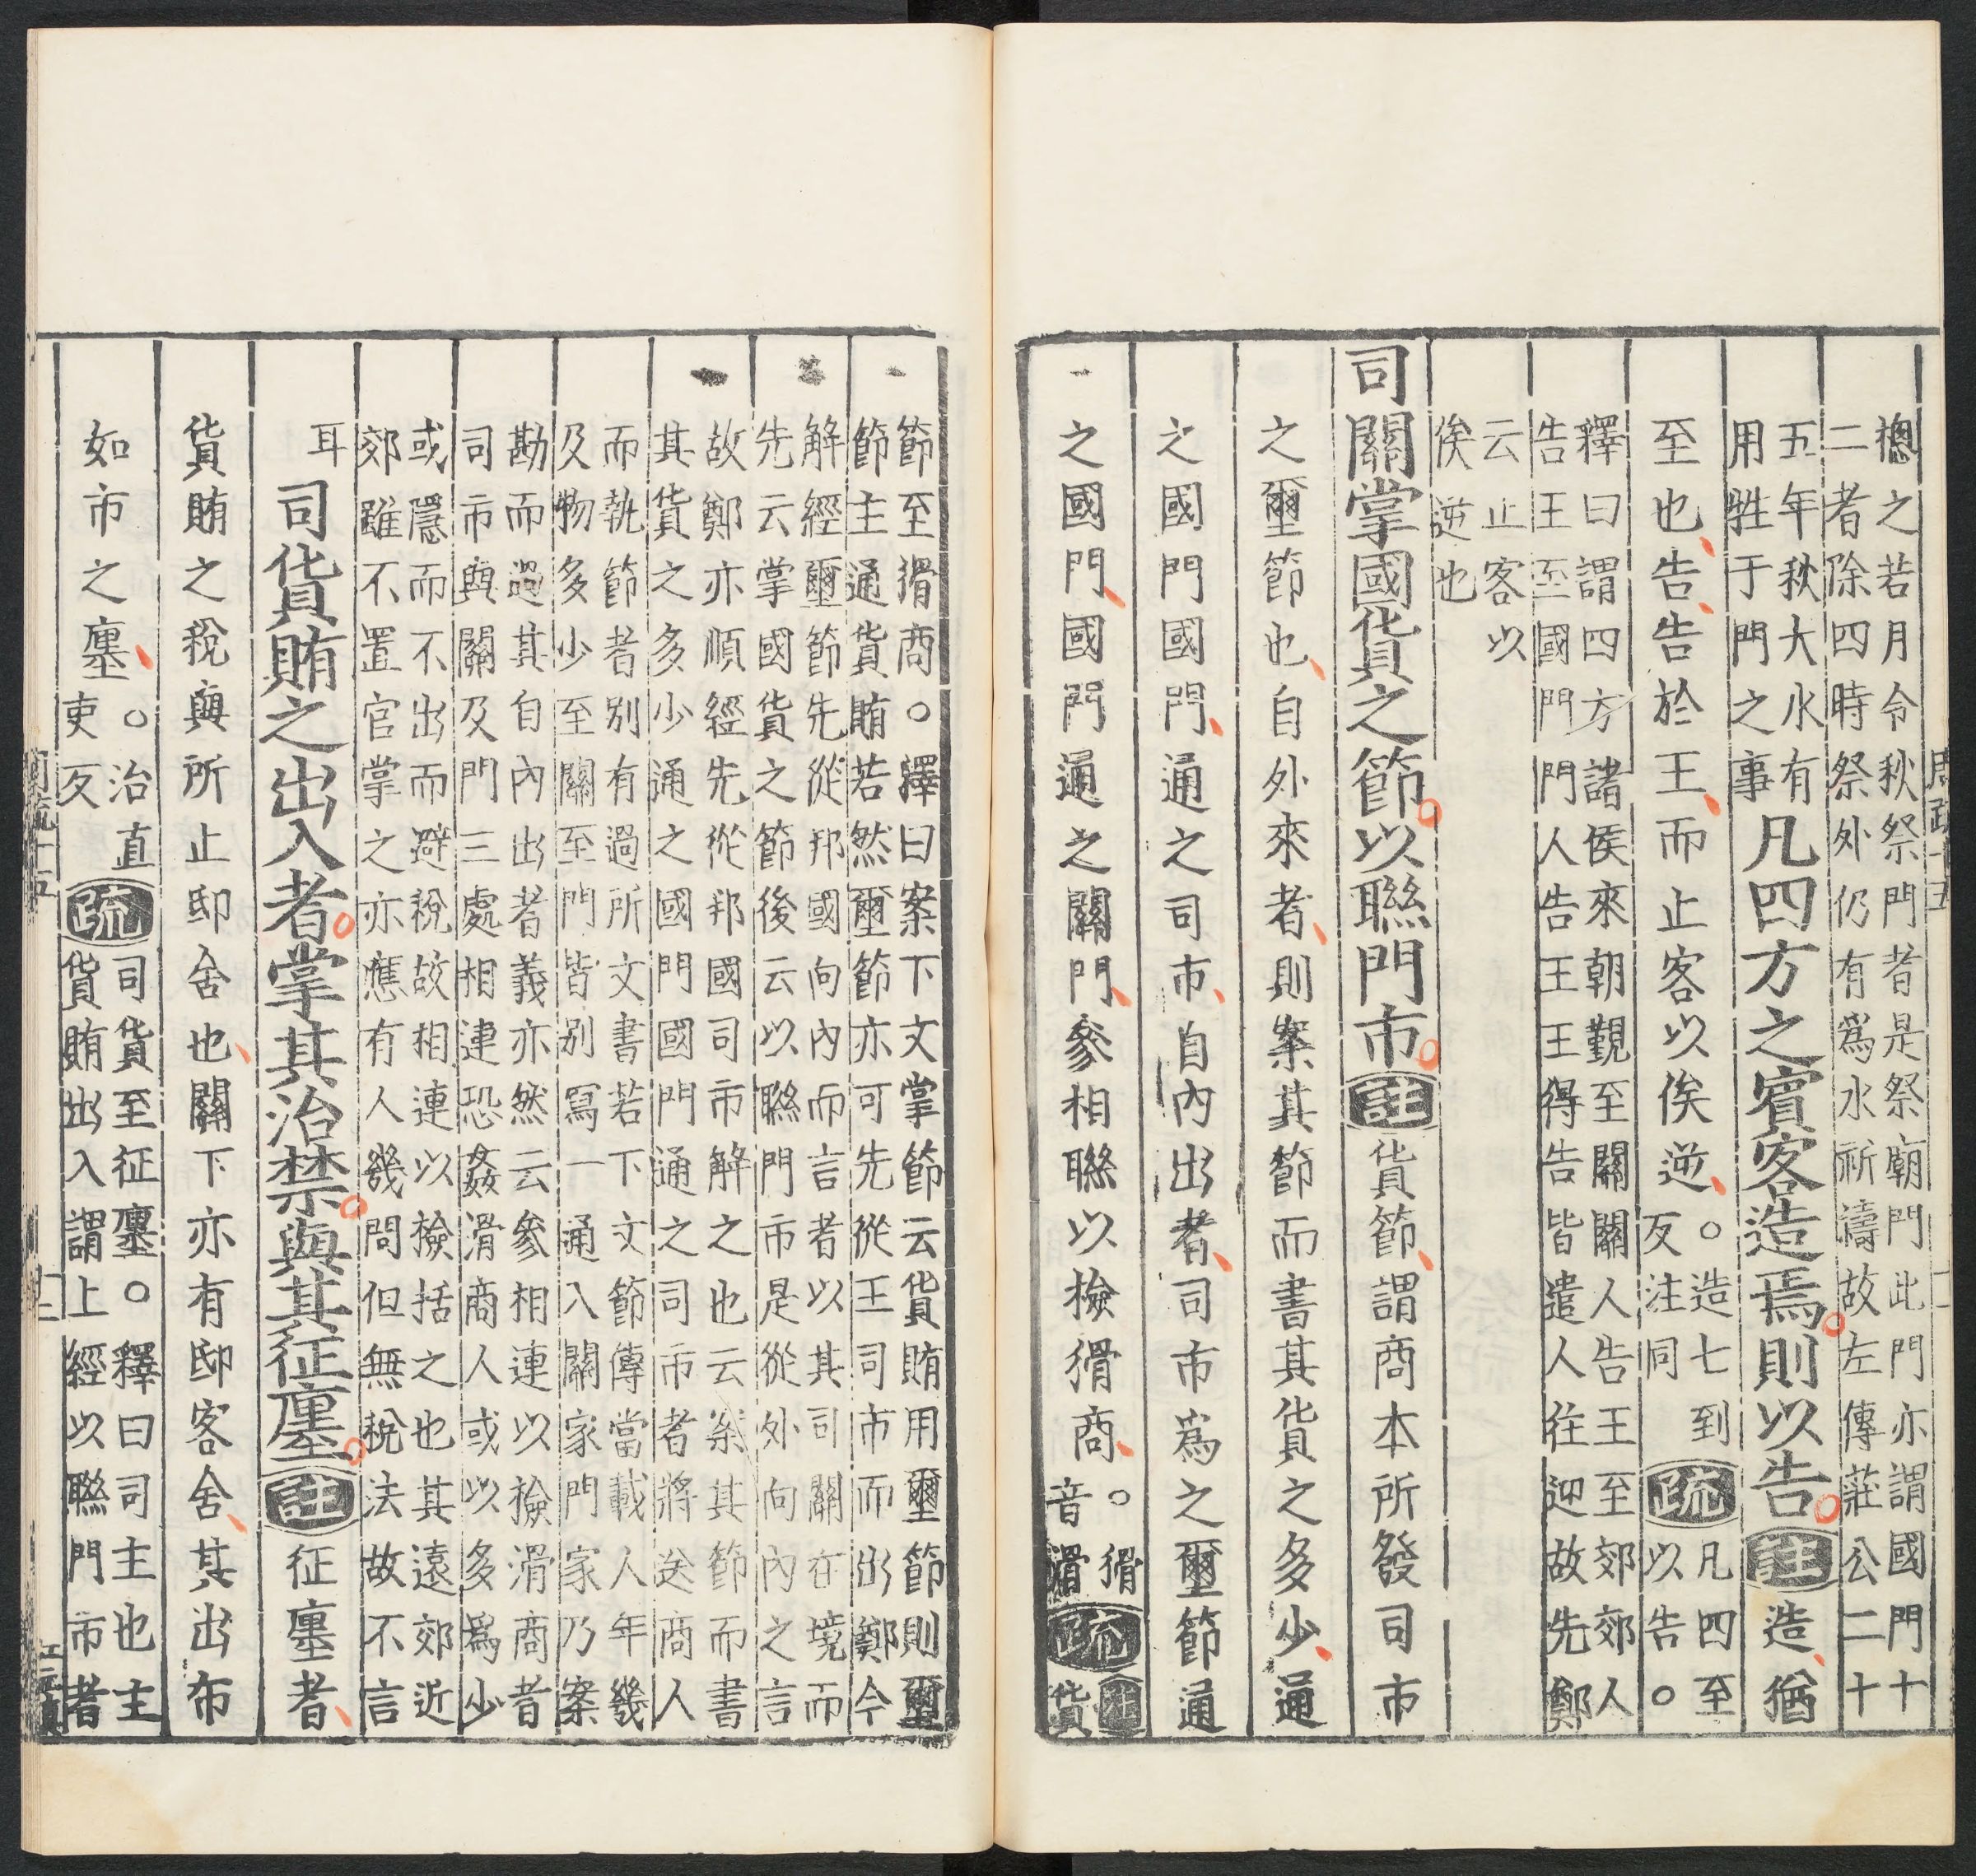 摠之若月令秋祭門者是祭廟門此門亦謂國門十
二者除四時祭外仍有爲水祈禱故左傳莊公二十
五年秋大水有
用牲于門之事
凡四方之賓客造焉則以告註造猶
至也告告於王而止客以俟逆
○造七到
反注同
疏
凡四至
以告○
釋曰謂四方諸侯來朝覲至關關人告王至郊郊人
告王至國門門人告王王得告皆遣人往迎故先鄭
云止客以
俟逆也
司關掌國貨之節以聯門市註貨節謂商本所發司市
之璽節也自外來者則案其節而書其貨之多少通
之國門國門通之司市自內出者司市爲之璽節通
之國門國門通之關門參相聯以檢猾商
○猾
音滑
疏
注
貨
節至猾商○釋曰案下文掌節云貨賄用璽節則璽
節主通貨賄若然璽節亦可先從王司市而出鄭今
解經璽節先從邦國向內而言者以其司關在境而
先云掌國貨之節後云以聯門市是從外向內之言
故鄭亦順經先從邦國司市解之也云案其節而書
其貨之多少通之國門國門通之司市者將送商人
而執節者別有過所文書若下文節傳當載人年幾
及物多少至關至門皆別寫一通入關家門家乃案
勘而過其自內出者義亦然云參相連以撿滑商者
司市與關及門三處相連恐姦滑商人或以多爲少
或隱而不出而避稅故相連以撿括之也其遠郊近
郊雖不置官掌之亦應有人幾問但無稅法故不言
耳
司貨賄之出入者掌其治禁與其征廛註征廛者
貨賄之稅與所止邸舍也關下亦有邸客舍其出布
如市之廛
○治直
吏反
疏
司貨至征廛○釋曰司主也主
貨賄出入謂上經以聯門市者